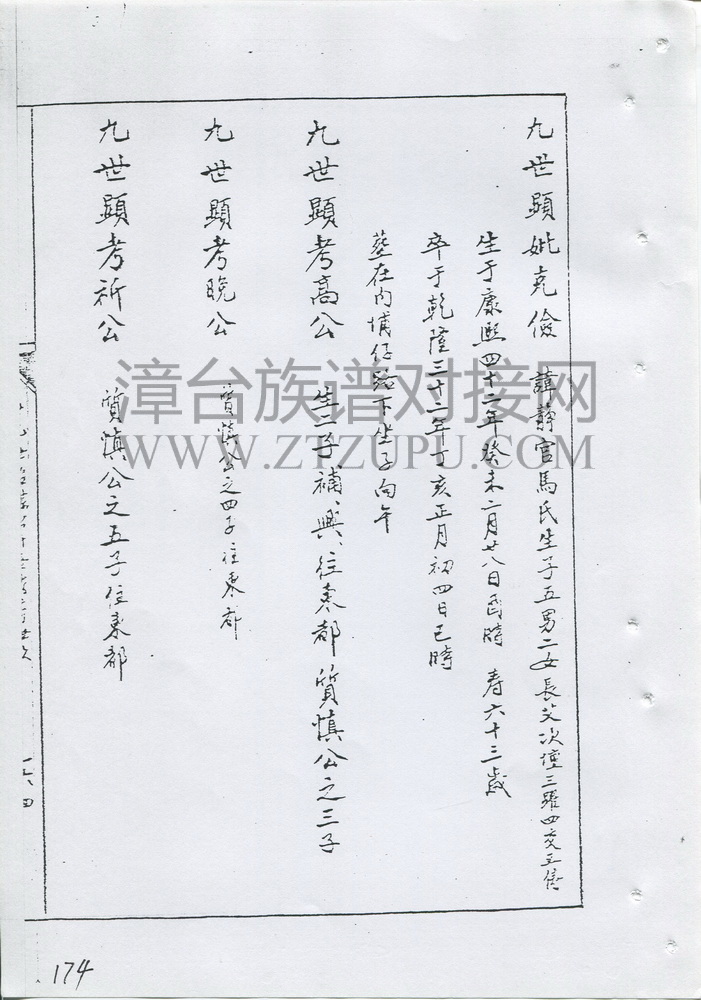 九世顯妣克儉 諱靜官馬氏生子五男二女長艾次 三 四 五
生于康熙四十二年癸未二月廿八日酉時 寿六十三歲
卒于乾隆三十二年丁亥正月初四日巳時
葬在内埔仔 下坐子向午
九世顯考高公 生二子補、興、往東都質慎公之三子
九世顯考晚公 質慎公之四子往東都
九世顯考祈公 質慎公之五子住東都
漳台族谱对接网
WWW.ZTZUPU.COM
174